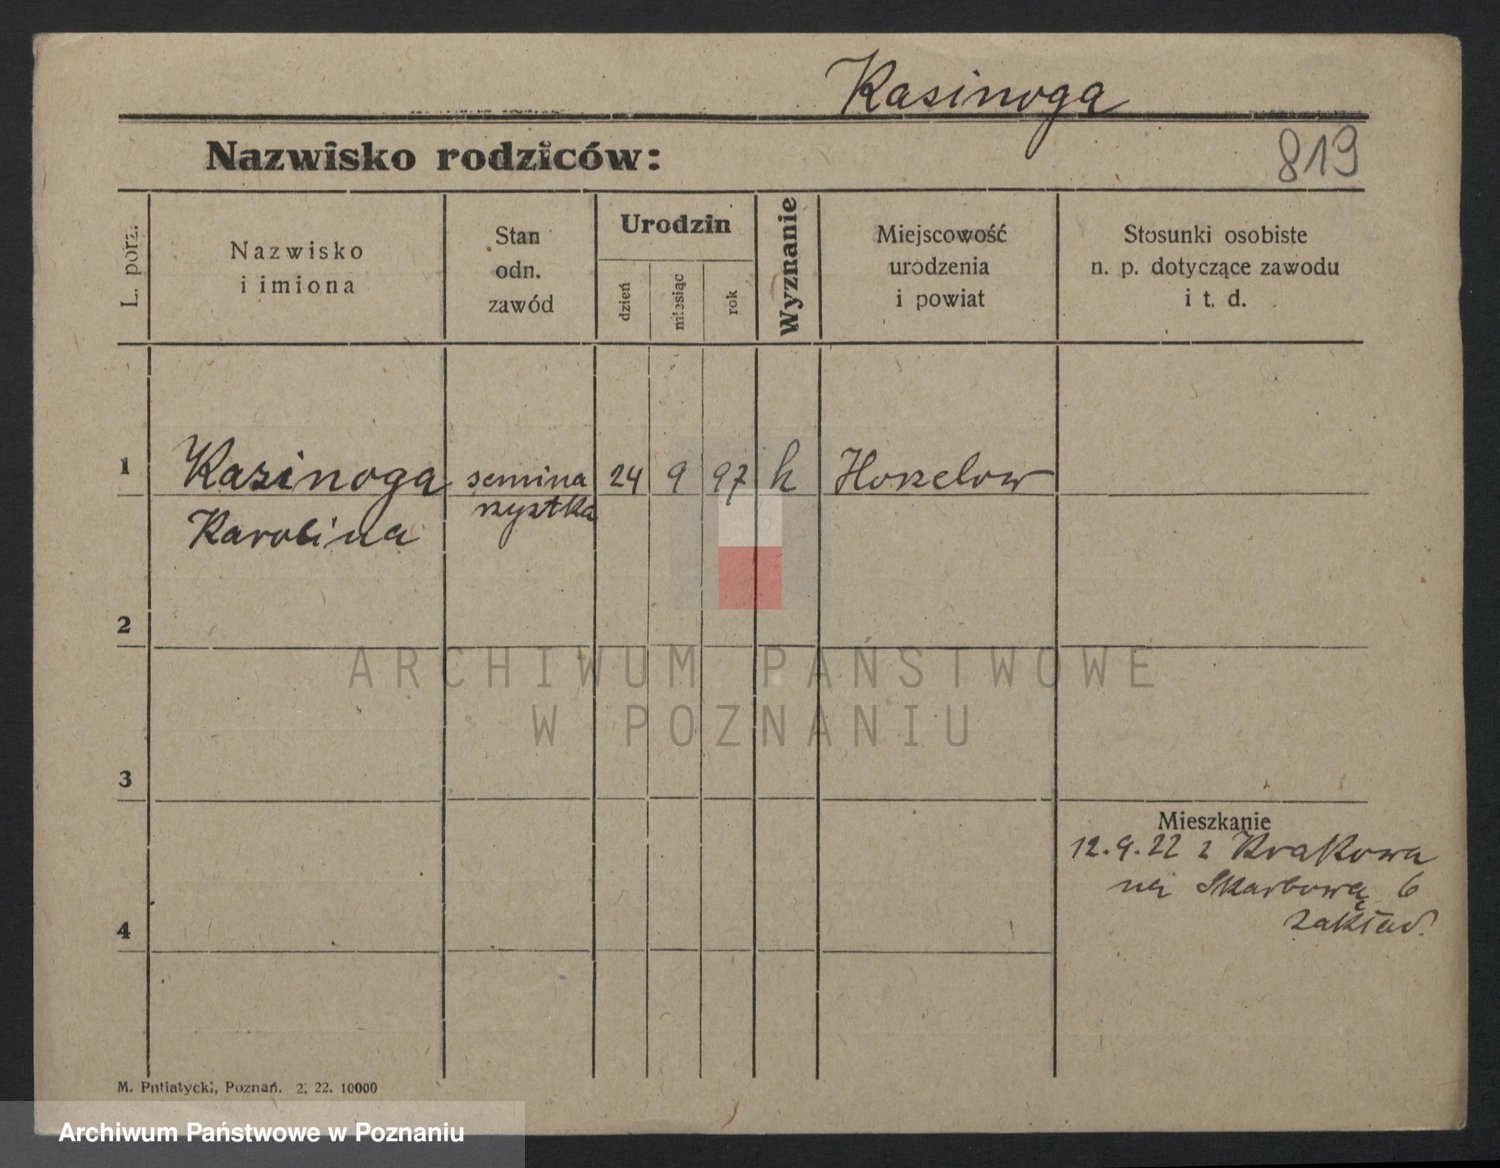 Kasinoga
819
Nazwisko rodziców:
L. porz.
Nazwisko
i imiona
Stan
odn.
zawód
Urodzin
dzień
miesiąc
rok
Wyznanie
Miejscowość
urodzenia
i powiat
Stosunki osobiste
n. p. dotyczące zawodu
i t. d.
1 Kasinoga semina 24 9 97 k
rzystka
Karolina
2
ARCHIWUM PAŃSTWOWE
W POZNANIU
3
Mieszkanie
12.9.22 z Krakowa
na Skarbową 6
zakład.
4
M. Putiatycki, Poznań. 2. 22. 10000
Archiwum Państwowe w Poznaniu